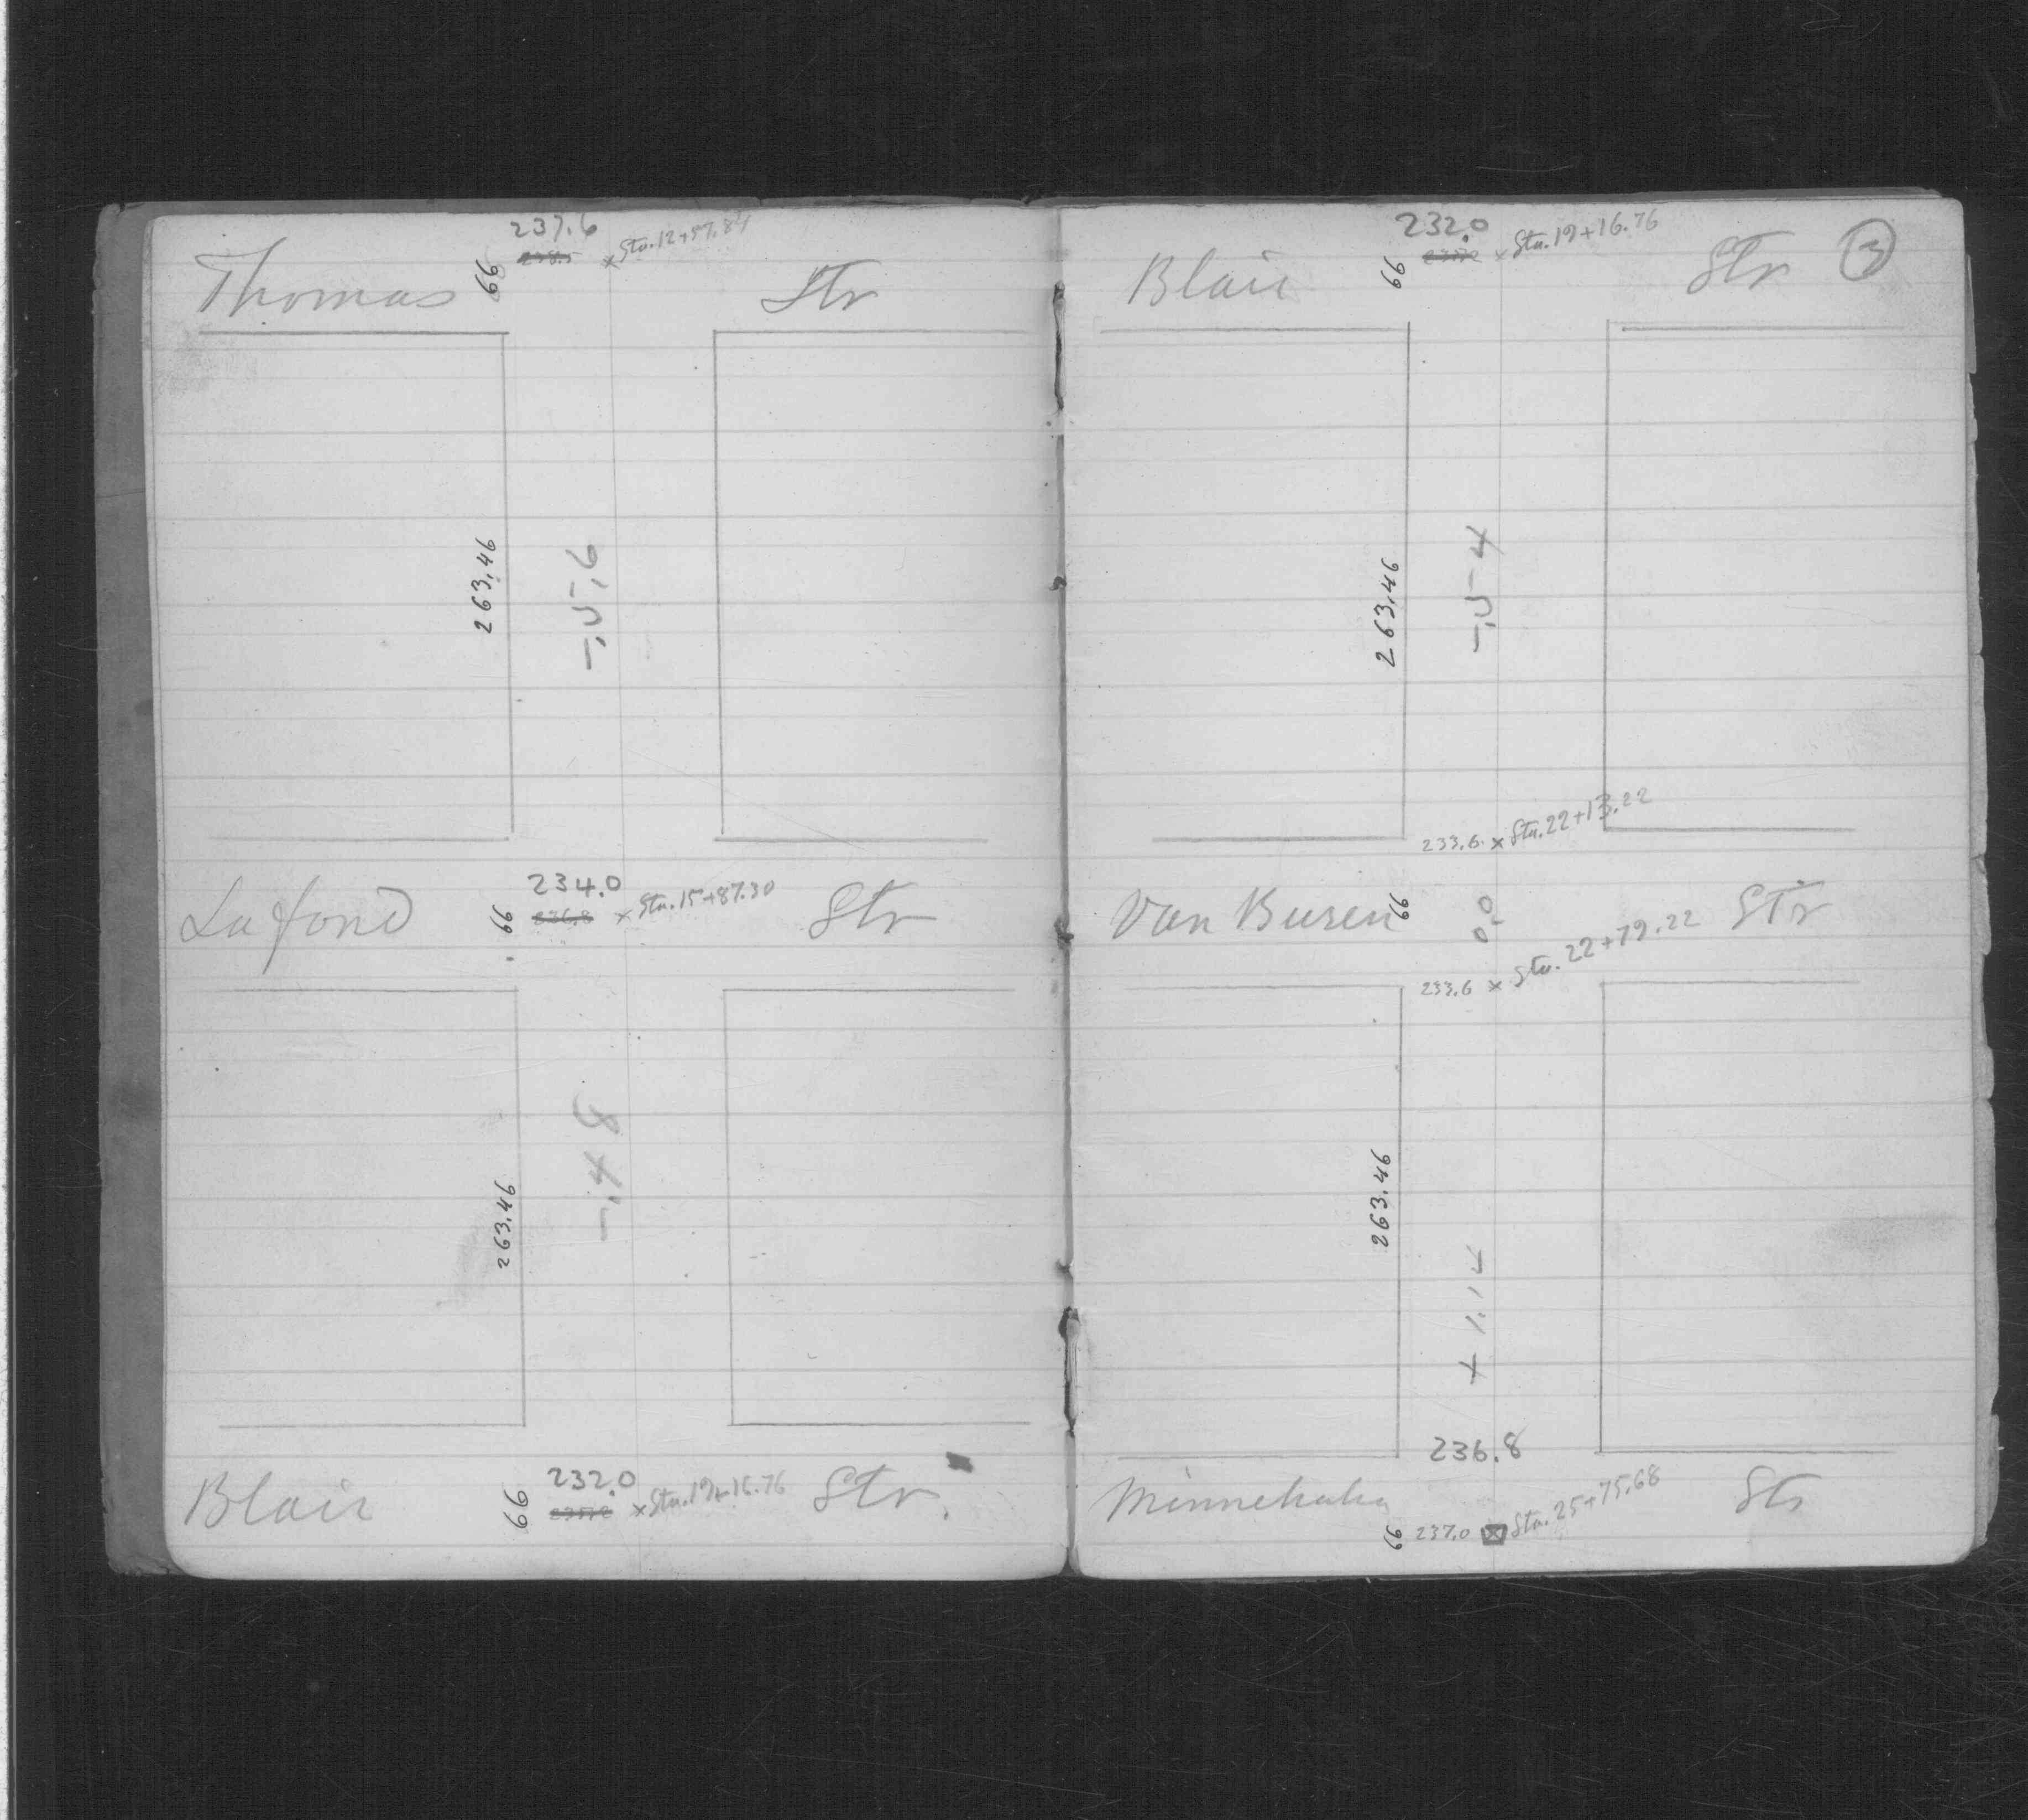 237.6
238.5 x Sta. 12+57.84
Thomas 66 Str
263.46
234.0
Lafond 66 236.8 x Sta. 15+87.30 Str
263.46
232.0
Blair 66 x Sta. 19+16.76 Str.
232.0 3
x Sta. 19+16.76
Blair 66 Str
263.46
233.6 x Sta. 22+13.22
Van Buren 66 0-0 Str
233.6 x Sta. 22+79.22
263.46
236.8
Minnehaha Str
66 237.0 x Sta. 25+75.68